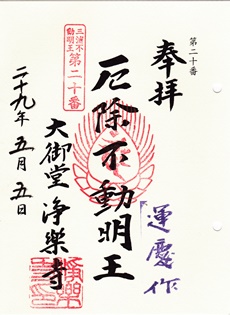 第二十番
奉拝
運慶作
厄除不動明王
三浦不動明王
第二十番
大御堂 浄楽寺
二十九年 五月 五日